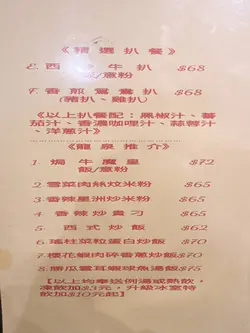 《精選扒餐》
6. 西冷牛扒 $68
飯/意粉
7. 香煎鴛鴦扒 $68
(豬扒、雞扒)
《以上扒餐配：黑椒汁、蕃
茄汁、香濃咖喱汁、蒜蓉汁
、洋蔥汁》
《龍泉推介》
1. 焗牛魔皇 $72
飯/意粉
2. 雪菜肉絲炆米粉 $65
3. 香辣星洲炒米粉 $65
4. 香辣炒貴刁 $65
5. 西式炒飯 $62
6. 瑤柱菜粒蛋白炒飯 $70
7. 櫻花蝦肉碎香蔥炒飯 $70
8. 勝瓜雲耳蝦球魚湯飯 $75
【以上均奉送例湯或熱飲，
凍飲加$3元，升級冰室特
飲加$10元起】